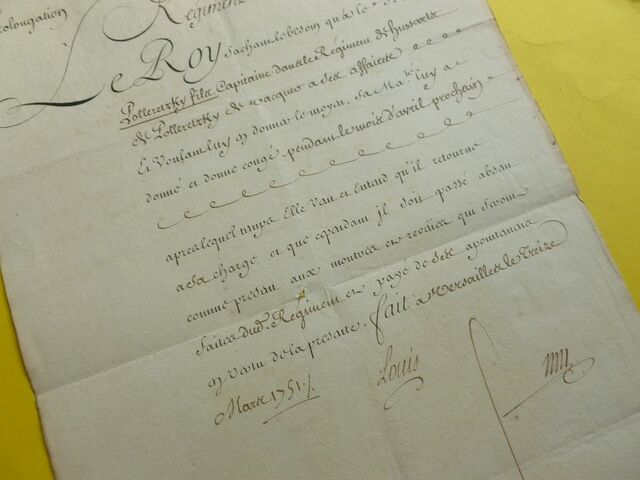 prolongation Regiment
Le Roy Sachant le besoin qu'a le S.
Polleretzky filz Capitaine dans le Regiment de hussarts
de Polleretzky de vacquer a ses affaires
Et Voulant luy en donner le moyen, Sa Ma.té luy a
donné et donne congé pendant le mois d'avril prochain
apres lequel temps Elle Veut et Entend qu'il retourne
a sa charge et que cependant jl soit passé absent
comme present aux montres et reveües qui seront
faites dud. Regiment et payé de ses apointemens
en vertu de la presente. fait a Versailles le Treize
Mars 1751.
Louis